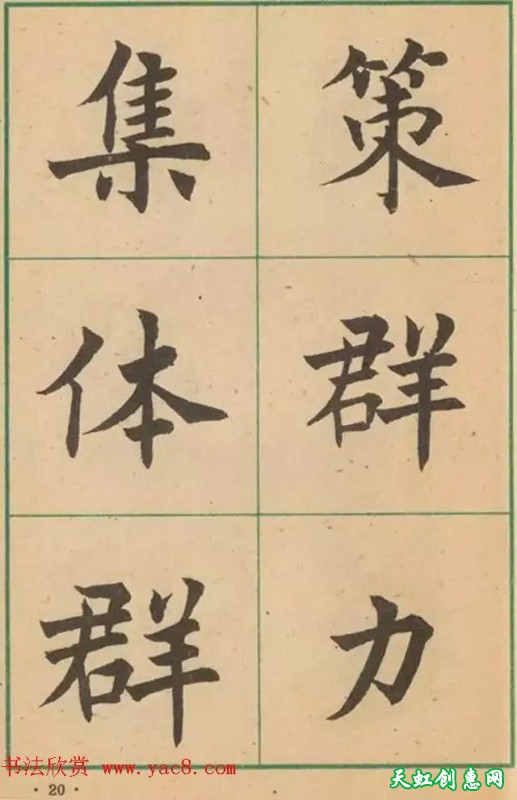 策群力
集体群
书法欣赏 www.yac8.com
· 20 ·
天虹创惠网